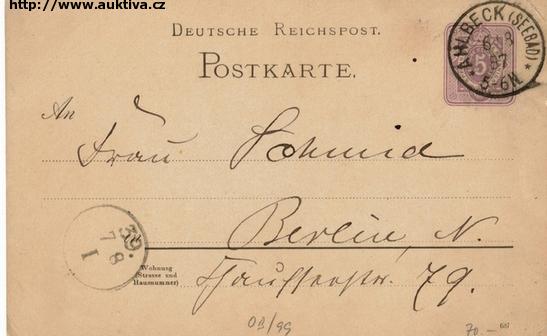 http://www.auktiva.cz
DEUTSCHE REICHSPOST.
POSTKARTE.
AHLBECK (SEEBAD)
6 8
87
5-6N.
5
An
Frau Schmid
Berlin, N.
39.
7 8
I
Wohnung
(Strasse und
Hausnummer)
Chausseestr. 79.
01/99
70.-